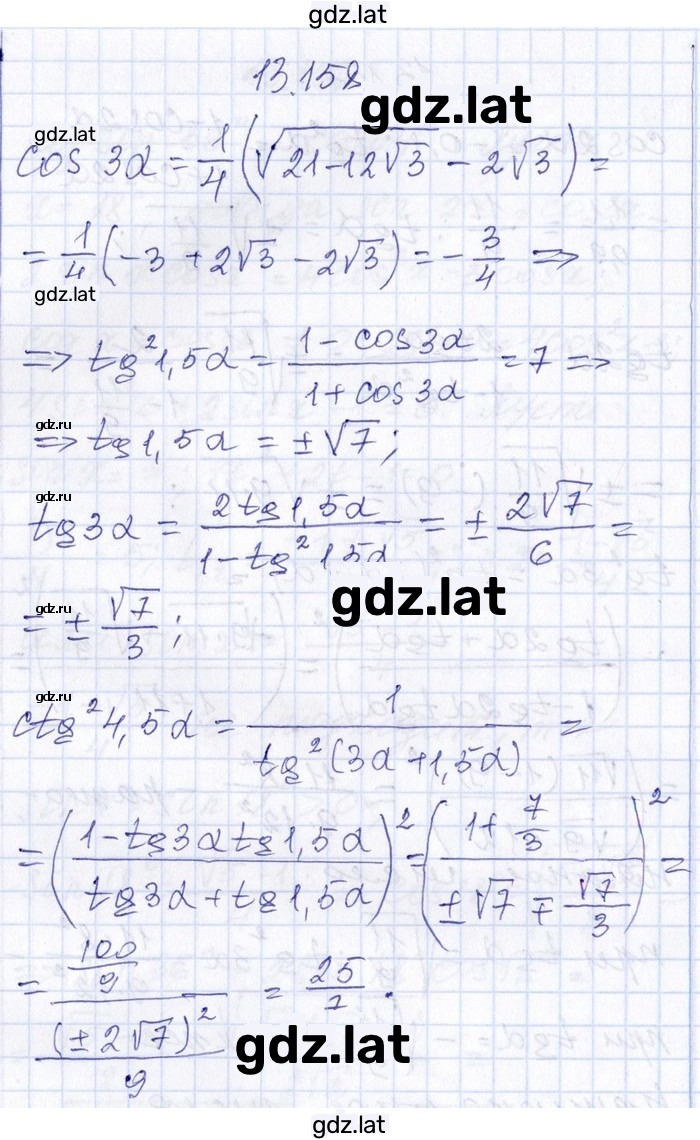 gdz.lat
13.158
gdz.lat
gdz.lat
cos 3α = 1/4 (√(21-12√3) - 2√3) =
= 1/4 (-3 + 2√3 - 2√3) = - 3/4 ⇒
gdz.lat
⇒ tg² 1,5α = (1 - cos 3α)/(1 + cos 3α) = 7 ⇒
gdz.ru
⇒ tg 1,5α = ± √7;
gdz.ru
tg 3α = (2 tg 1,5α)/(1 - tg² 1,5α) = ± 2√7/6 =
gdz.lat
gdz.ru
= ± √7/3;
gdz.ru
ctg² 4,5α = 1/(tg² (3α + 1,5α)) =
= ((1 - tg 3α tg 1,5α)/(tg 3α + tg 1,5α))² = ((1 + 7/3)/(± √7 ∓ √7/3))² =
= (100/9)/((± 2√7)²/9) = 25/7.
gdz.lat
gdz.lat